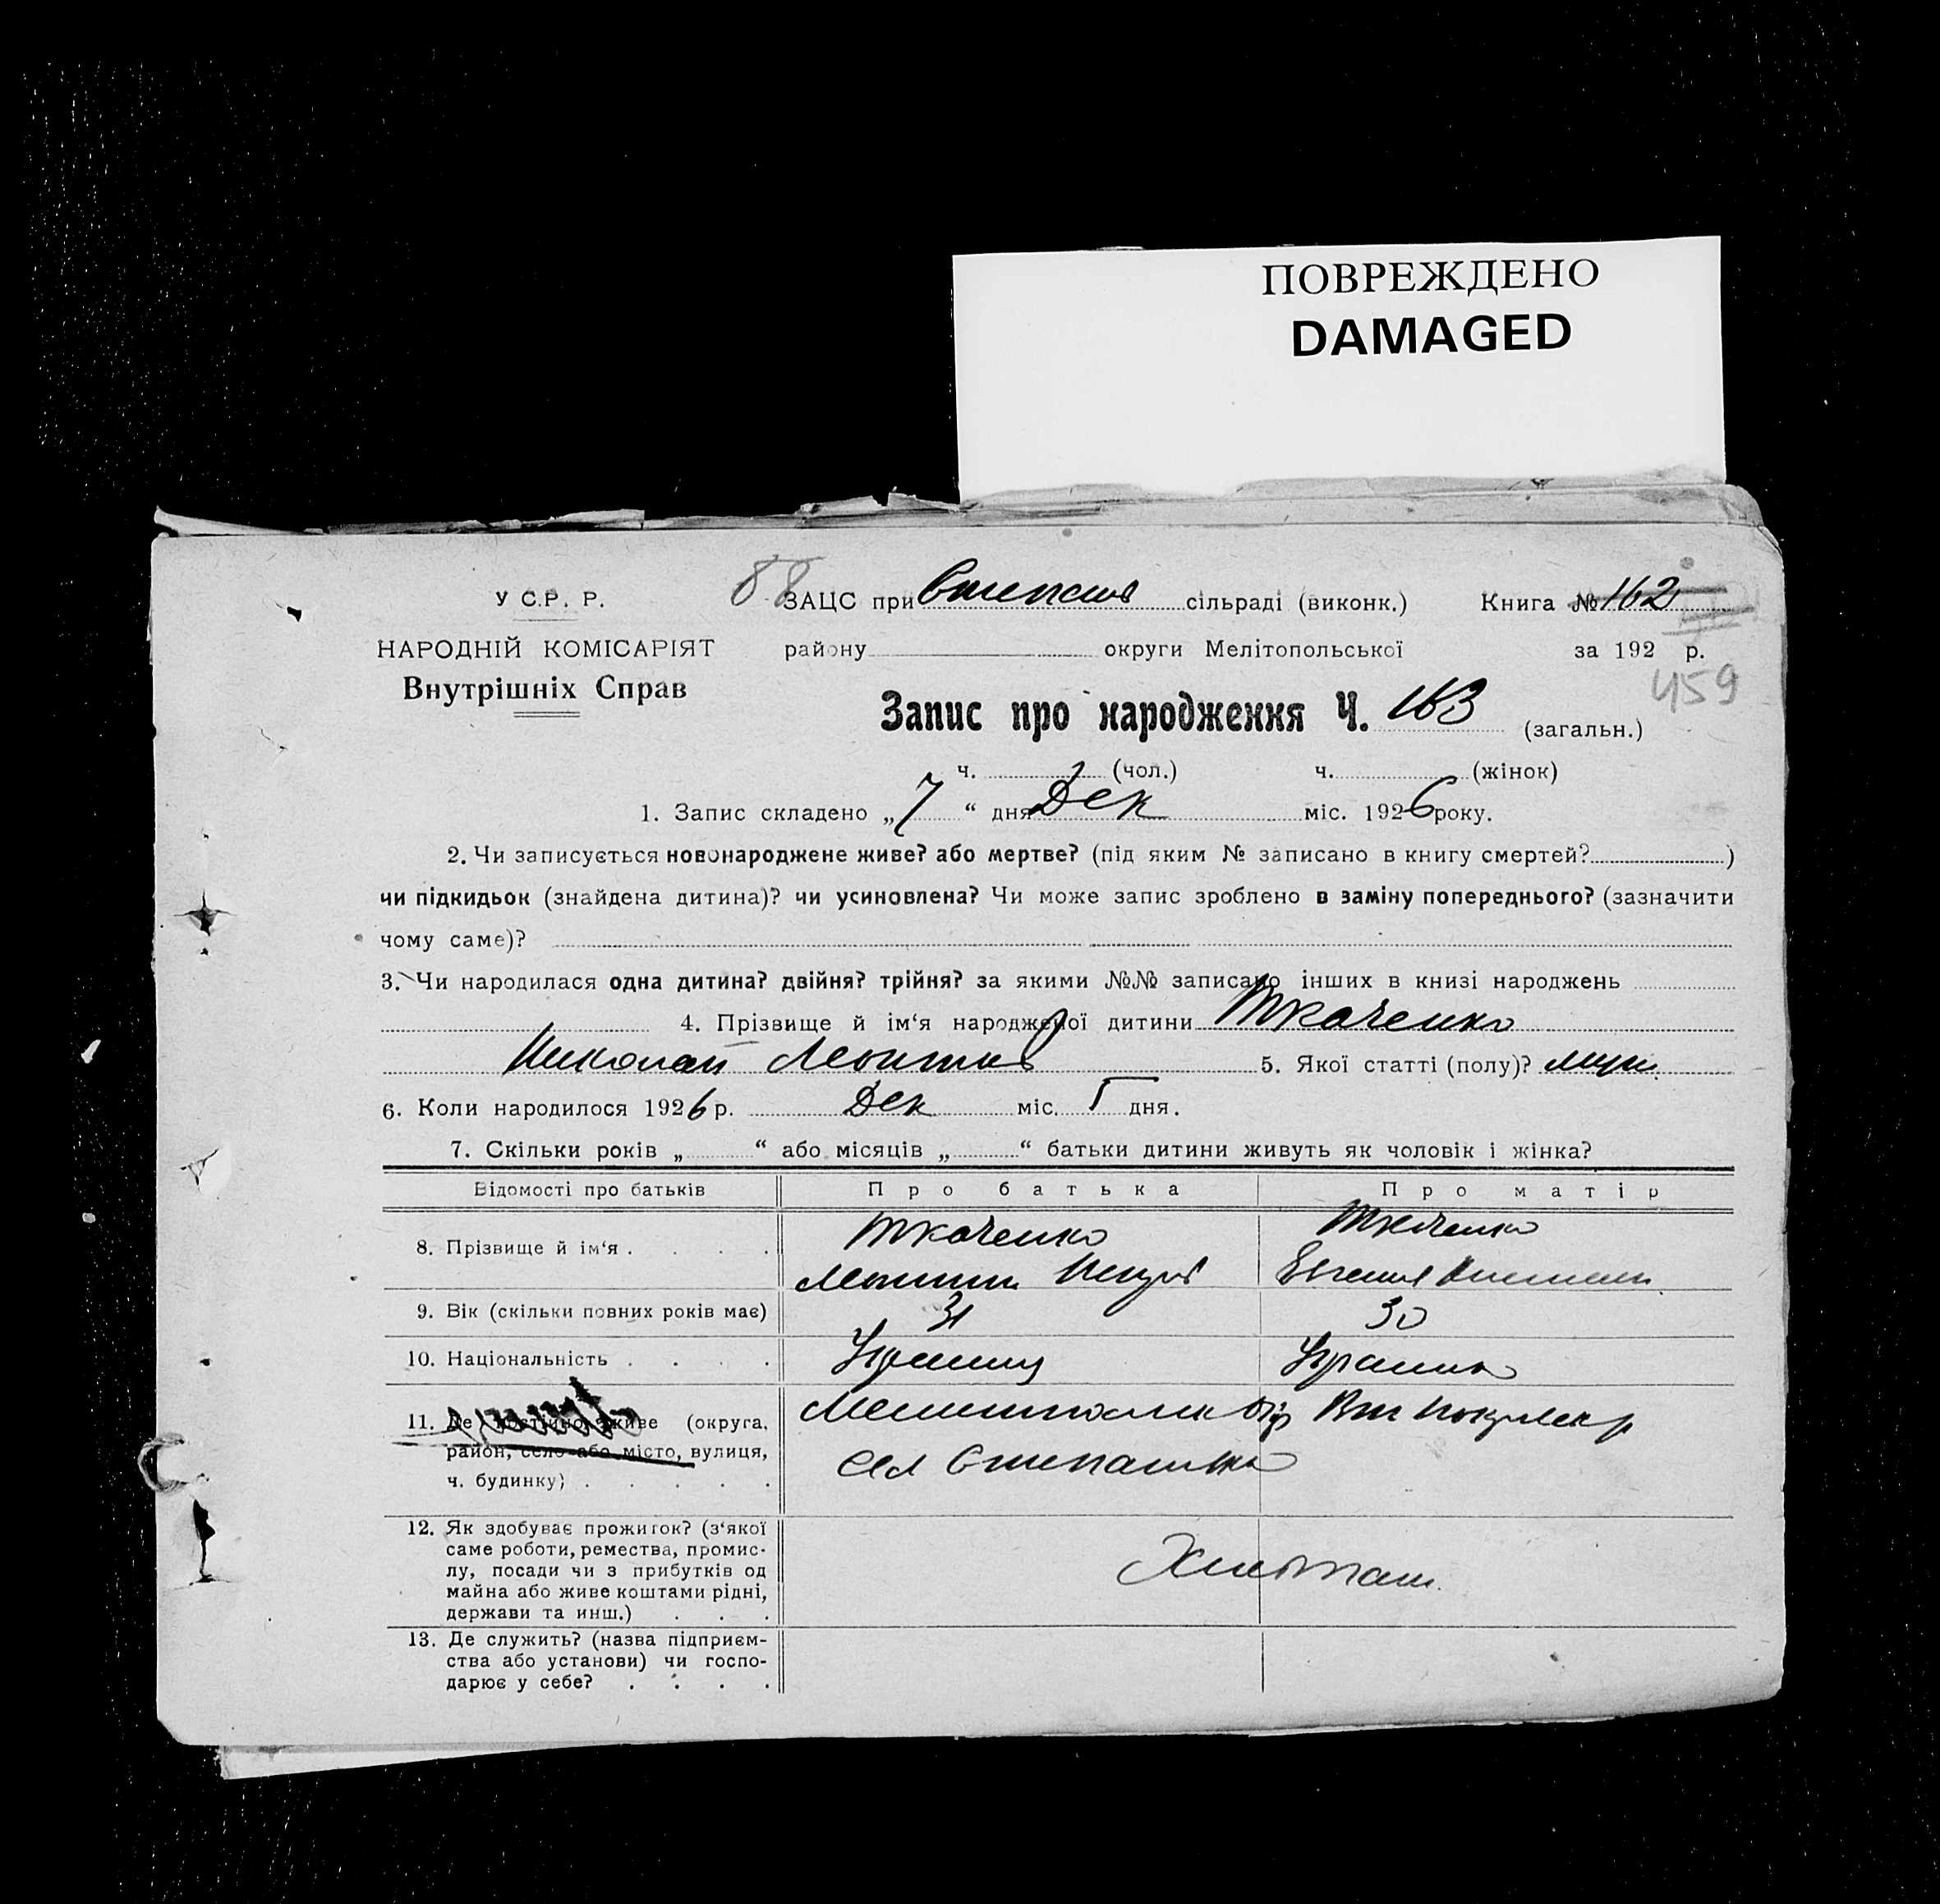 ПОВРЕЖДЕНО
DAMAGED
У С.Р. Р.
88 ЗАЦС при Степанів сільраді (виконк.) Книга № 162
НАРОДНІЙ КОМІСАРІЯТ району округи Мелітопольської за 192 р.
Внутрішніх Справ
459
Запис про народження Ч. 163 (загальн.)
ч. (чол.) ч. (жінок)
1. Запис складено „ 7 “ дня Дек міс. 1926 року.
2. Чи записується новонароджене живе? або мертве? (під яким № записано в книгу смертей? )
чи підкидьок (знайдена дитина)? чи усиновлена? Чи може запис зроблено в заміну попереднього? (зазначити
чому саме)?
3. Чи народилася одна дитина? двійня? трійня? за якими №№ записано інших в книзі народжень
4. Прізвище й ім‘я народженої дитини Ткаченко
Николай 5. Якої статті (полу)? муж.
6. Коли народилося 1926 р. Дек міс. 5 дня.
7. Скільки років „ “ або місяців „ “ батьки дитини живуть як чоловік і жінка?
Відомості про батьків Про батька Про матір
8. Прізвище й ім‘я . . . . Ткаченко Ткаченко
Евгения
9. Вік (скільки повних років має) 31 30
10. Національність . . . . Украинц Украинк
11. Де постійно живе (округа,
район, село або місто, вулиця,
ч. будинку) . . . . .
сел Степановка
12. Як здобуває прожиток? (з‘якої
саме роботи, ремества, промис-
лу, посади чи з прибутків од
майна або живе коштами рідні,
держави та инш.) . . .
Хлебопаш.
13. Де служить? (назва підприєм-
ства або установи) чи госпо-
дарює у себе? . . . .